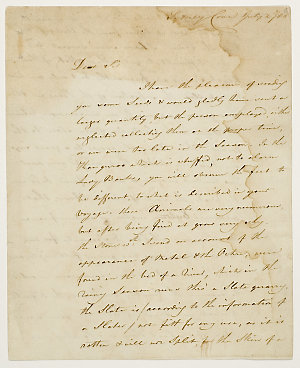 Sydney Cove July 2 1788
Dear Sir
I have the pleasure of sending
you some Seeds & would gladly have sent a
larger quantity but the person employed either
neglected collecting them at the proper time,
or we were too late in the Season. In the
Kangaroo which is stuffed, not to alarm
Lady Banks, you will observe the feet to
be different, to what is described in your
Voyage. these Animals are very
but after being fired at grow very shy
the Stone is Send on account of the
appearance of Metal & the Ochre, were
found in the bed of a River, which in the
rainy Season runs thro a Slate quarry,
the Slate is (according to the information of
a Slater) not fit for any use, as it is
rotten & will not Split for the